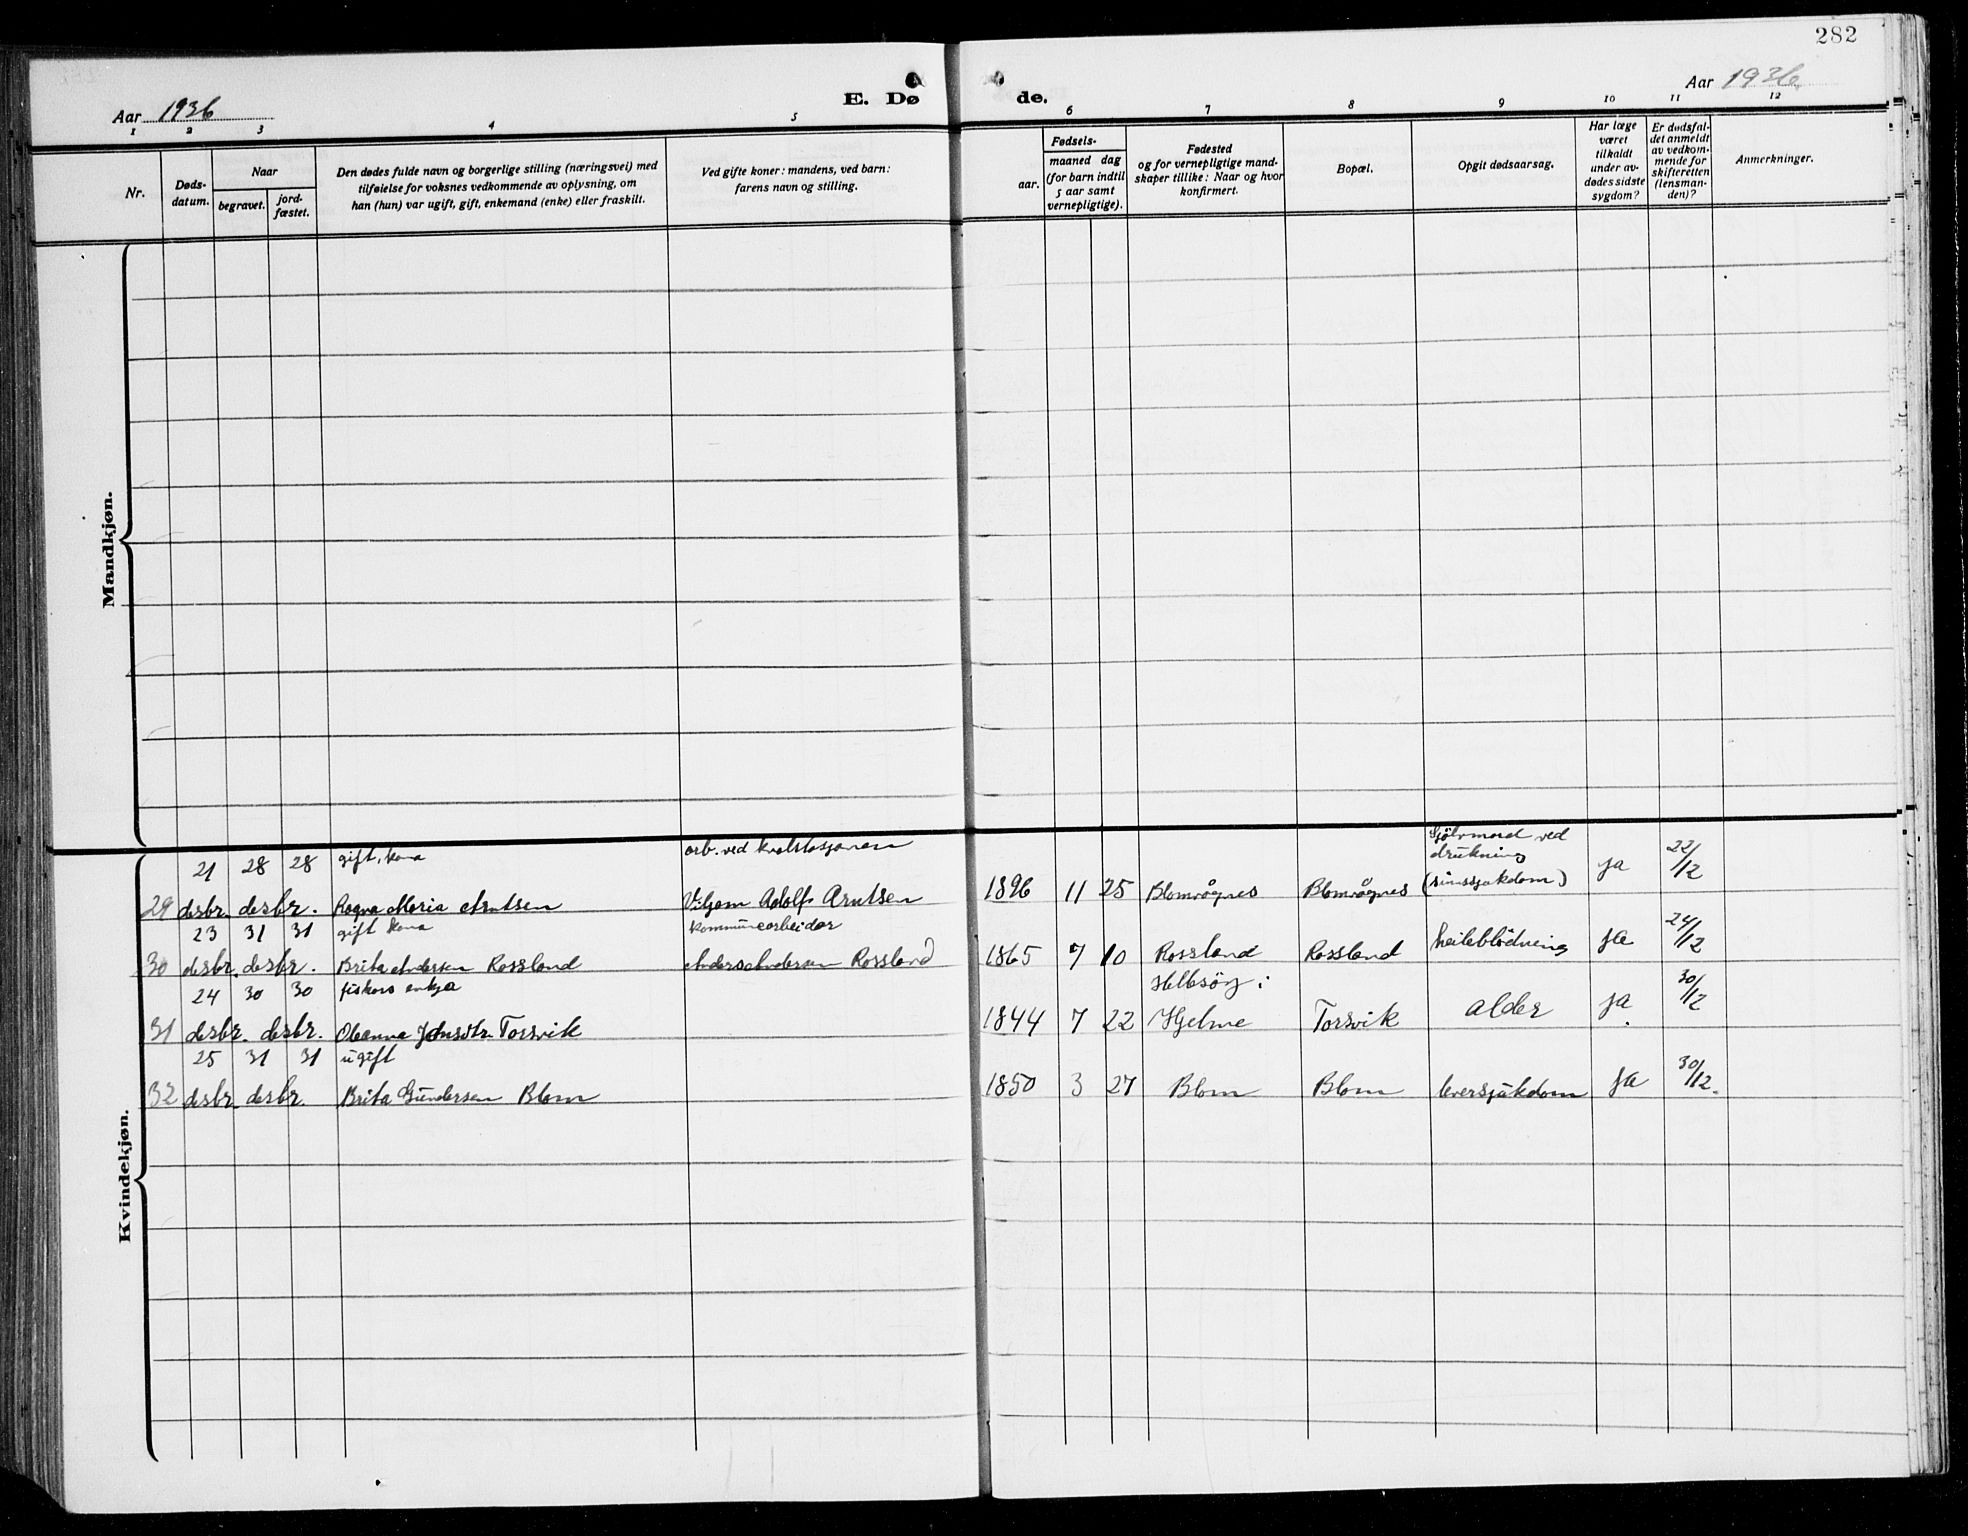 282
Aar 1936
E. Dø de.
Aar 1936
1 2 3 4 5 6 7 8 9 10 11 12
Nr.
Døds-
datum.
Naar
begravet.
jord-
fæstet.
Den dødes fulde navn og borgerlige stilling (næringsvei) med
tilføielse for voksnes vedkommende av oplysning, om
han (hun) var ugift, gift, enkemand (enke) eller fraskilt.
Ved gifte koner: mandens, ved barn:
farens navn og stilling.
Fødsels-
aar.
maaned dag
(for barn indtil
5 aar samt
vernepligtige).
Fødested
og for vernepligtige mand-
skaper tillike: Naar og hvor
konfirmert.
Bopæl.
Opgit dødsaarsag.
Har læge
været
tilkaldt
under av-
dødes sidste
sygdom?
Er dødsfal-
det anmeldt
av vedkom-
mende for
skifteretten
(lensman-
den)?
Anmerkninger.
Mandkjøn.
Kvindekjøn.
21 28 28 gift, kona arb. ved kvalstasjonen Sjölvmord ved
drukning
29 desbr. desbr. Ragna Maria Arntsen Viljam Adolf Arntsen 1896 11 25 Blomvågnes Blomvågnes (sinssjukdom) ja 22/12
23 31 31 gift kona kommunearbeidar
30 desbr. desbr. Brita Andersen Rossland Anders Andersen Rossland 1865 7 10 Rossland Rossland heileblödning ja 24/12
24 30 30 fiskars enkja Hellesöy i
31 desbr. desbr. Oleanna Johnsdtr. Torsvik 1844 7 22 Hjelme Torsvik alder ja. 30/12
25 31 31 ugift
32 desbr. desbr. Brita Gundersen Blom 1850 3 27 Blom Blom leversjukdom ja 30/12.